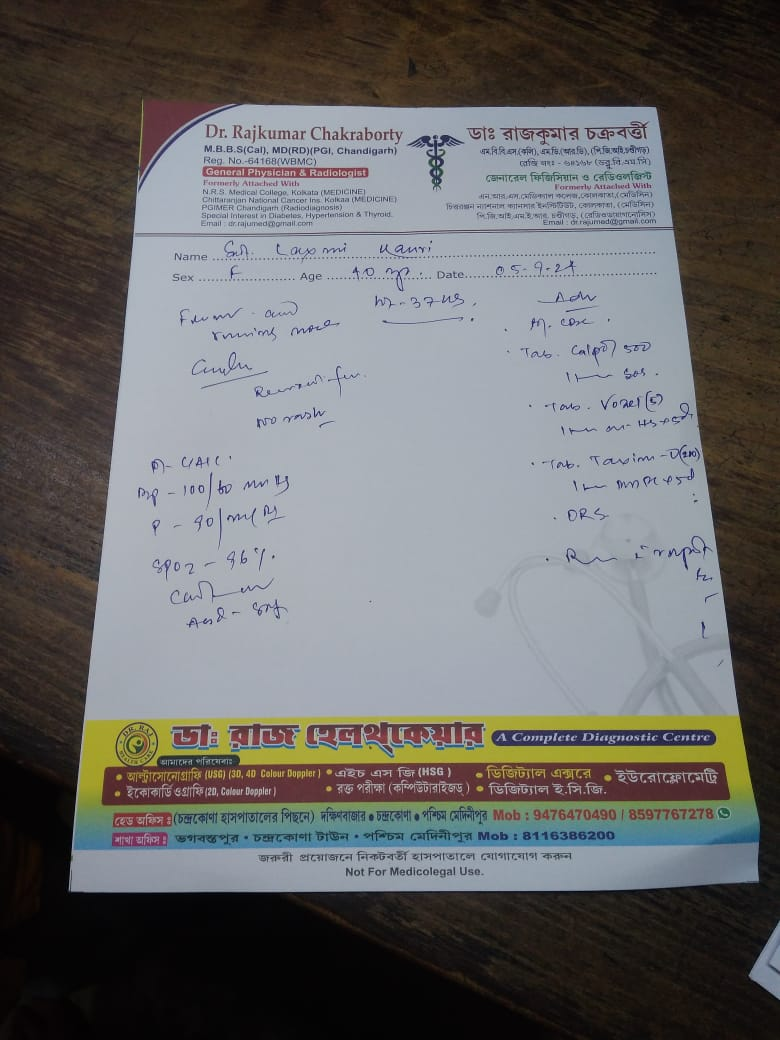 Dr. Rajkumar Chakraborty
M.B.B.S(Cal), MD(RD)(PGI, Chandigarh)
Reg. No.-64168(WBMC)
General Physician & Radiologist
Formerly Attached With
N.R.S. Medical College, Kolkata (MEDICINE)
Chittaranjan National Cancer Ins. Kolkaa (MEDICINE)
PGIMER Chandigarh (Radiodiagnosis)
Special Interest in Diabetes, Hypertension & Thyroid.
Email : dr.rajumed@gmail.com
ডাঃ রাজকুমার চক্রবর্ত্তী
এম.বি.বি.এস.(কলি), এম.ডি.(আর.ডি), (পি.জি.আই.চণ্ডীগড়)
রেজি নংঃ - ৬৪১৬৮ (ডব্লু.বি.এম.সি)
জেনারেল ফিজিসিয়ান ও রেডিওলজিস্ট
Formerly Attached With
এন.আর.এস.মেডিক্যাল কলেজ,কোলকাতা,(মেডিসিন)
চিত্তরঞ্জন ন্যাশনাল ক্যানসার ইনস্টিটিউট, কোলকাতা, (মেডিসিন)
পি.জি.আই.এম.ই.আর. চণ্ডীগড়, (রেডিওডায়াগনোসিস)
Email : dr.rajumed@gmail.com
Name Laxmi
Sex F Age 40 yr. Date 05-9-24
Fever and
running nose
Wt-37 kg
Adv
Tab. Calpol 500
SOS.
No rash
BP - 100/60 mmHg
P - 90/
SPO2 - 96%.
Tab. Taxim-O(200)
ORS
DR. RAJ
ডাঃ রাজ হেলথ্‌কেয়ার
A Complete Diagnostic Centre
আমাদের পরিষেবাঃ
• আল্ট্রাসোনোগ্রাফি (USG) (3D, 4D Colour Doppler) • এইচ এস জি (HSG) • ডিজিট্যাল এক্সরে • ইউরোফ্লোমেট্রি
• ইকোকার্ডিওগ্রাফি (2D, Colour Doppler) • রক্ত পরীক্ষা (কম্পিউটারাইজড্) • ডিজিট্যাল ই.সি.জি.
হেড অফিস : (চন্দ্রকোণা হাসপাতালের পিছনে) দক্ষিণবাজার • চন্দ্রকোণা • পশ্চিম মেদিনীপুর Mob : 9476470490 / 8597767278
শাখা অফিস : ভগবন্তপুর • চন্দ্রকোণা টাউন • পশ্চিম মেদিনীপুর Mob : 8116386200
জরুরী প্রয়োজনে নিকটবর্তী হাসপাতালে যোগাযোগ করুন
Not For Medicolegal Use.